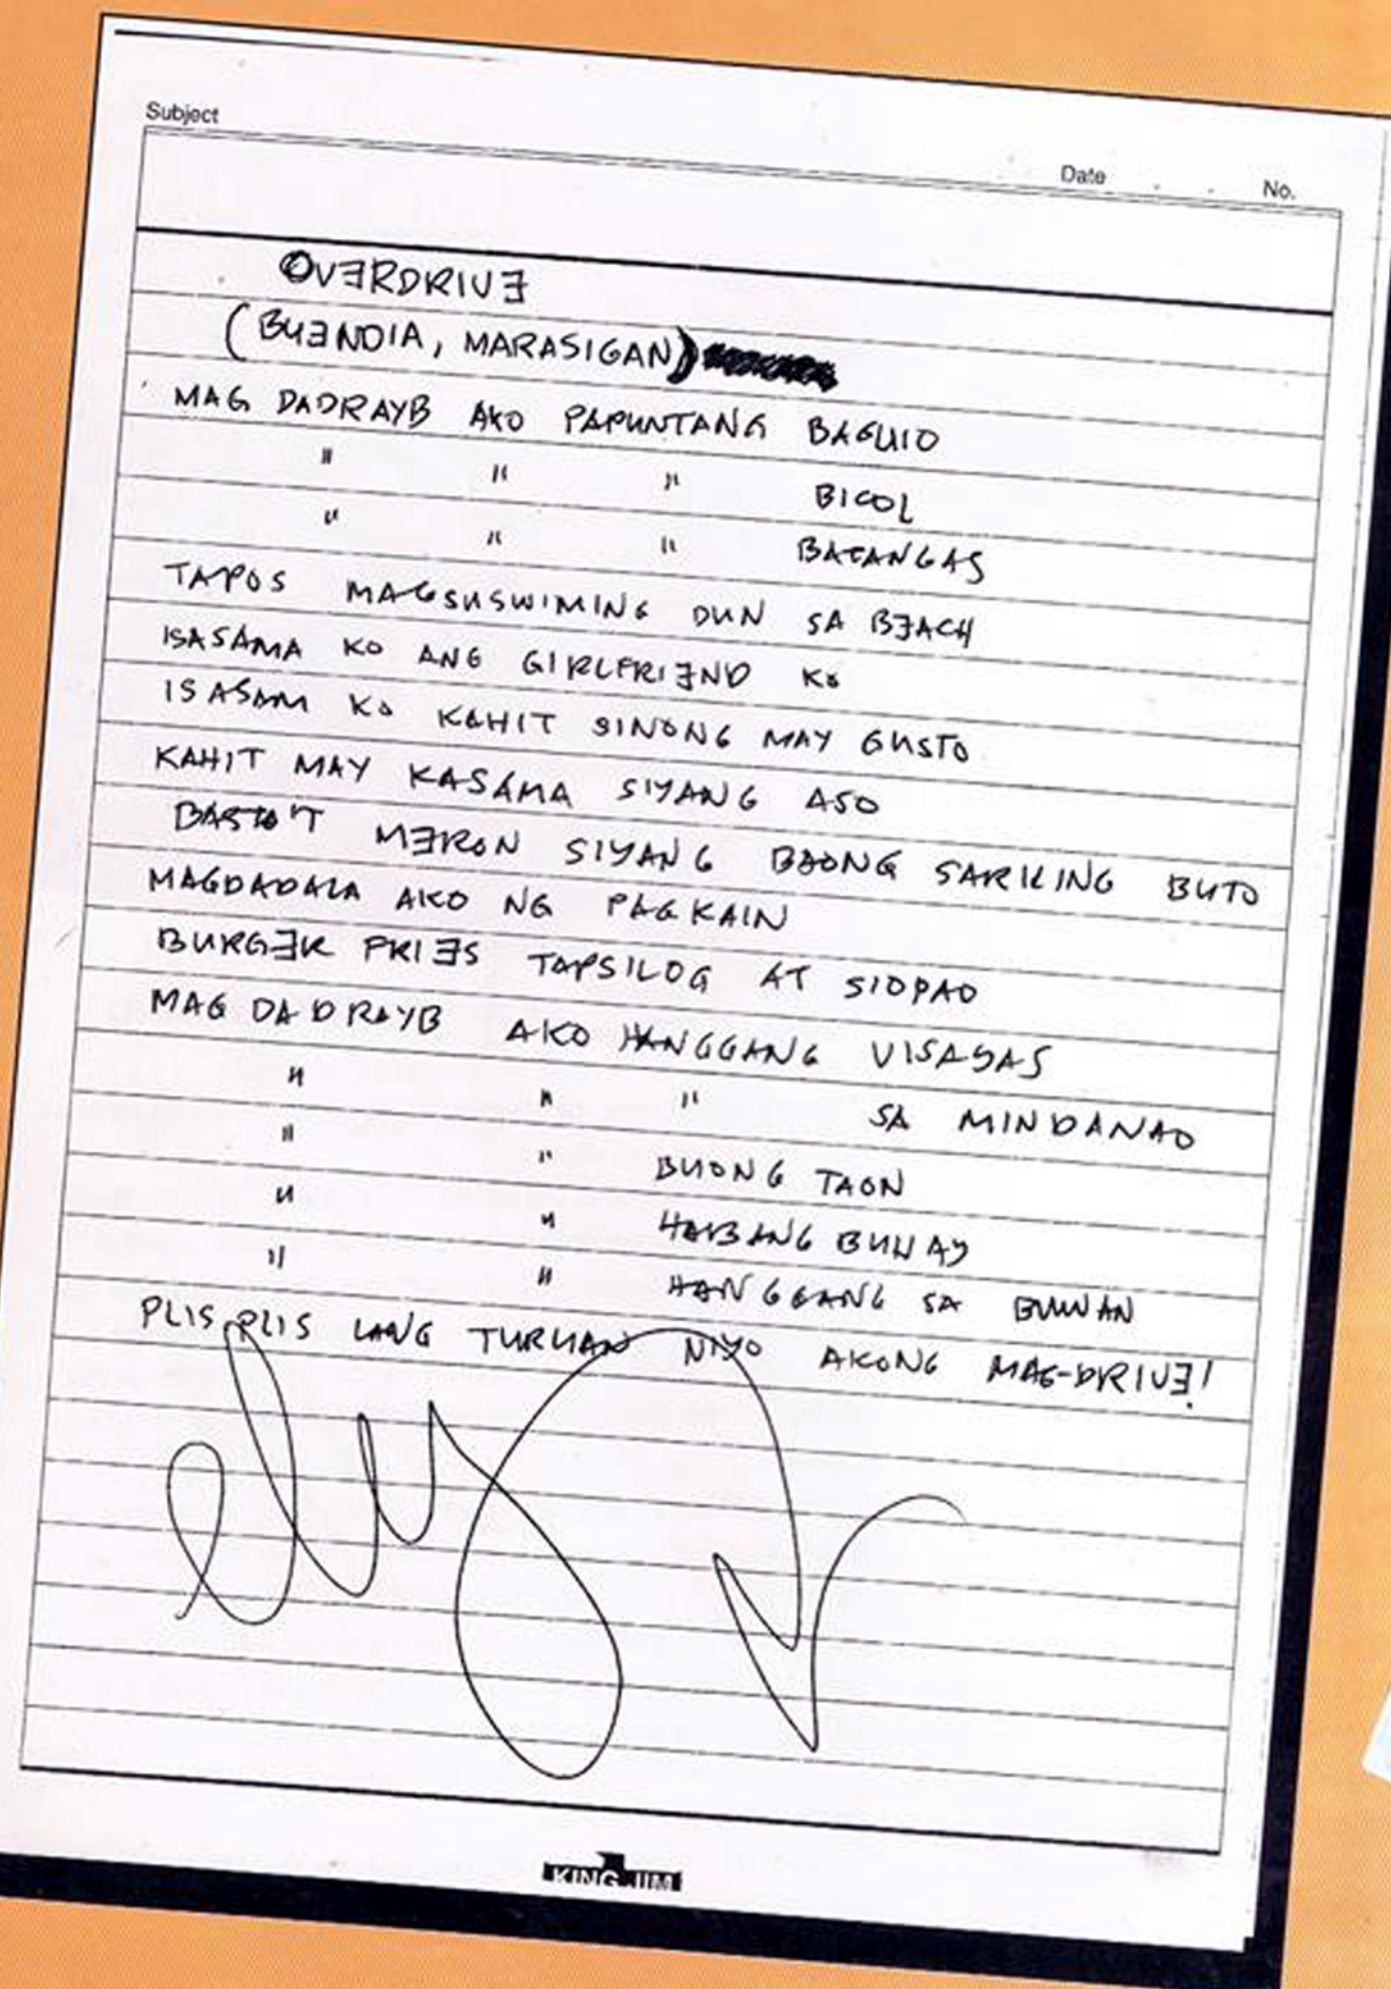 Subject
Date . . No.
OVERDRIVE
(BUENDIA, MARASIGAN)
MAG DADRAYB AKO PAPUNTANG BAGUIO
" " " BICOL
" " " BATANGAS
TAPOS MAGSUSWIMING DUN SA BEACH
ISASAMA KO ANG GIRLFRIEND KO
ISASAM KO KAHIT SINONG MAY GUSTO
KAHIT MAY KASAMA SIYANG ASO
BASTA'T MERON SIYANG BAONG SARILING BUTO
MAGDADALA AKO NG PAGKAIN
BURGER FRIES TAPSILOG AT SIOPAO
MAG DADRAYB AKO HANGGANG VISAYAS
" " " SA MINDANAO
" " BUONG TAON
" " HABANG BUHAY
" " HANGGANG SA BUWAN
PLIS PLIS LANG TURUAN NIYO AKONG MAG-DRIVE!
ely
KING JIM